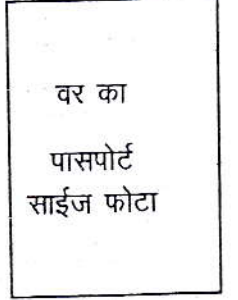 वर का
पासपोर्ट
साईज फोटा